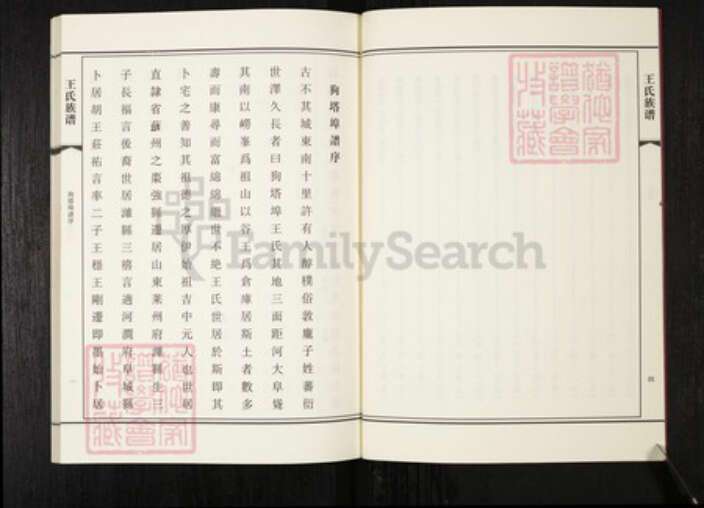 王氏族谱
四
狗塔埠譜序
古不其城東南十里許有人醇樸俗敦龐子姓蕃衍
世澤久長者曰狗塔埠王氏其地三面距河大阜聳
其南以嶗峯爲祖山以谷王爲倉庫居斯土者數多
壽而康尋而富綿綿繼世不绝王氏世居於斯即其
卜宅之善知其祖德之厚伊始祖吉中元人也世居
直隸省蘇州之棗強縣遷居山東莱州府濰縣生三
子長福言後裔世居濰縣三禧言適河澗府阜城縣
卜居胡王莊祐言率二子王穩王剛遷即墨始卜居
王氏族谱
狗塔埠譜序
一
FamilySearch